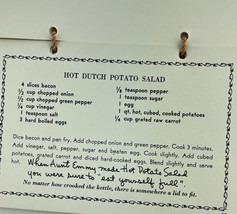 HOT DUTCH POTATO SALAD
4 slices bacon
½ cup chopped onion
½ cup chopped green pepper
¼ cup vinegar
1 teaspoon salt
3 hard boiled eggs
⅛ teaspoon pepper
1 teaspoon sugar
1 egg
1 qt. hot, cubed, cooked potatoes
¼ cup grated raw carrot
Dice bacon and pan fry. Add chopped onion and green pepper. Cook 3 minutes.
Add vinegar, salt, pepper, sugar and beaten egg. Cook slightly. Add cubed
potatoes, grated carrot and diced hard-cooked eggs. Blend slightly and serve
hot.
When Aunt Emmy made Hot Potato Salad
you were sure to "eat yourself full"
No matter how crooked the kettle, there is somewhere a lid to fit.